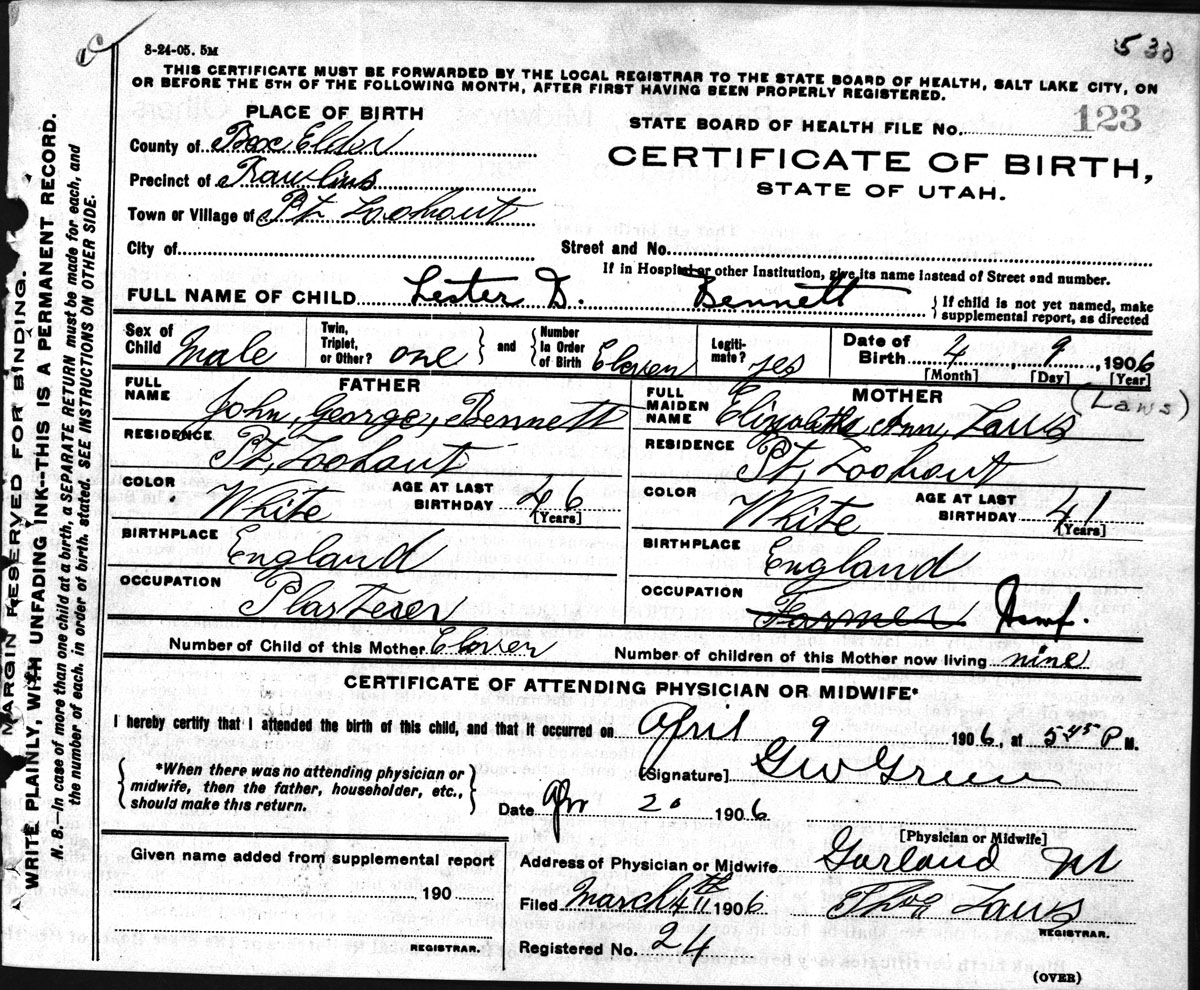 530
8-24-05. 5M
THIS CERTIFICATE MUST BE FORWARDED BY THE LOCAL REGISTRAR TO THE STATE BOARD OF HEALTH, SALT LAKE CITY, ON
OR BEFORE THE 5TH OF THE FOLLOWING MONTH, AFTER FIRST HAVING BEEN PROPERLY REGISTERED.
PLACE OF BIRTH
STATE BOARD OF HEALTH FILE No. 123
County of Box Elder
CERTIFICATE OF BIRTH,
Precinct of Rawlins
STATE OF UTAH.
Town or Village of Pt. Lookout
City of
Street and No.
If in Hospital or other Institution, give its name instead of Street and number.
FULL NAME OF CHILD Lester D. Bennett
If child is not yet named, make
supplemental report, as directed
Sex of Child Male
Twin, Triplet, or Other? one
and
Number in Order of Birth Eleven
Legitimate? yes
Date of Birth 4, 9, 1906
[Month] [Day] [Year]
FATHER
FULL NAME John, George, Bennett
RESIDENCE Pt, Lookout
COLOR White
AGE AT LAST BIRTHDAY 46
[Years]
BIRTHPLACE England
OCCUPATION Plasterer
MOTHER (Laws)
FULL MAIDEN NAME Ann, Laws
RESIDENCE Pt, Lookout
COLOR White
AGE AT LAST BIRTHDAY 41
[Years]
BIRTHPLACE England
OCCUPATION Farmer Hswf.
Number of Child of this Mother
Number of children of this Mother now living nine
CERTIFICATE OF ATTENDING PHYSICIAN OR MIDWIFE*
I hereby certify that I attended the birth of this child, and that it occurred on April 9 1906, at 5 45 P M.
*When there was no attending physician or
midwife, then the father, householder, etc.,
should make this return.
[Signature] GW Green
Date Apr 20 1906
[Physician or Midwife]
Given name added from supplemental report
190
REGISTRAR.
Address of Physician or Midwife Garland
Filed March 1906
Thos Laws
REGISTRAR.
Registered No. 24
(OVER)
MARGIN RESERVED FOR BINDING.
WRITE PLAINLY, WITH UNFADING INK--THIS IS A PERMANENT RECORD.
N. B.—In case of more than one child at a birth, a SEPARATE RETURN must be made for each, and
the number of each, in order of birth, stated. SEE INSTRUCTIONS ON OTHER SIDE.